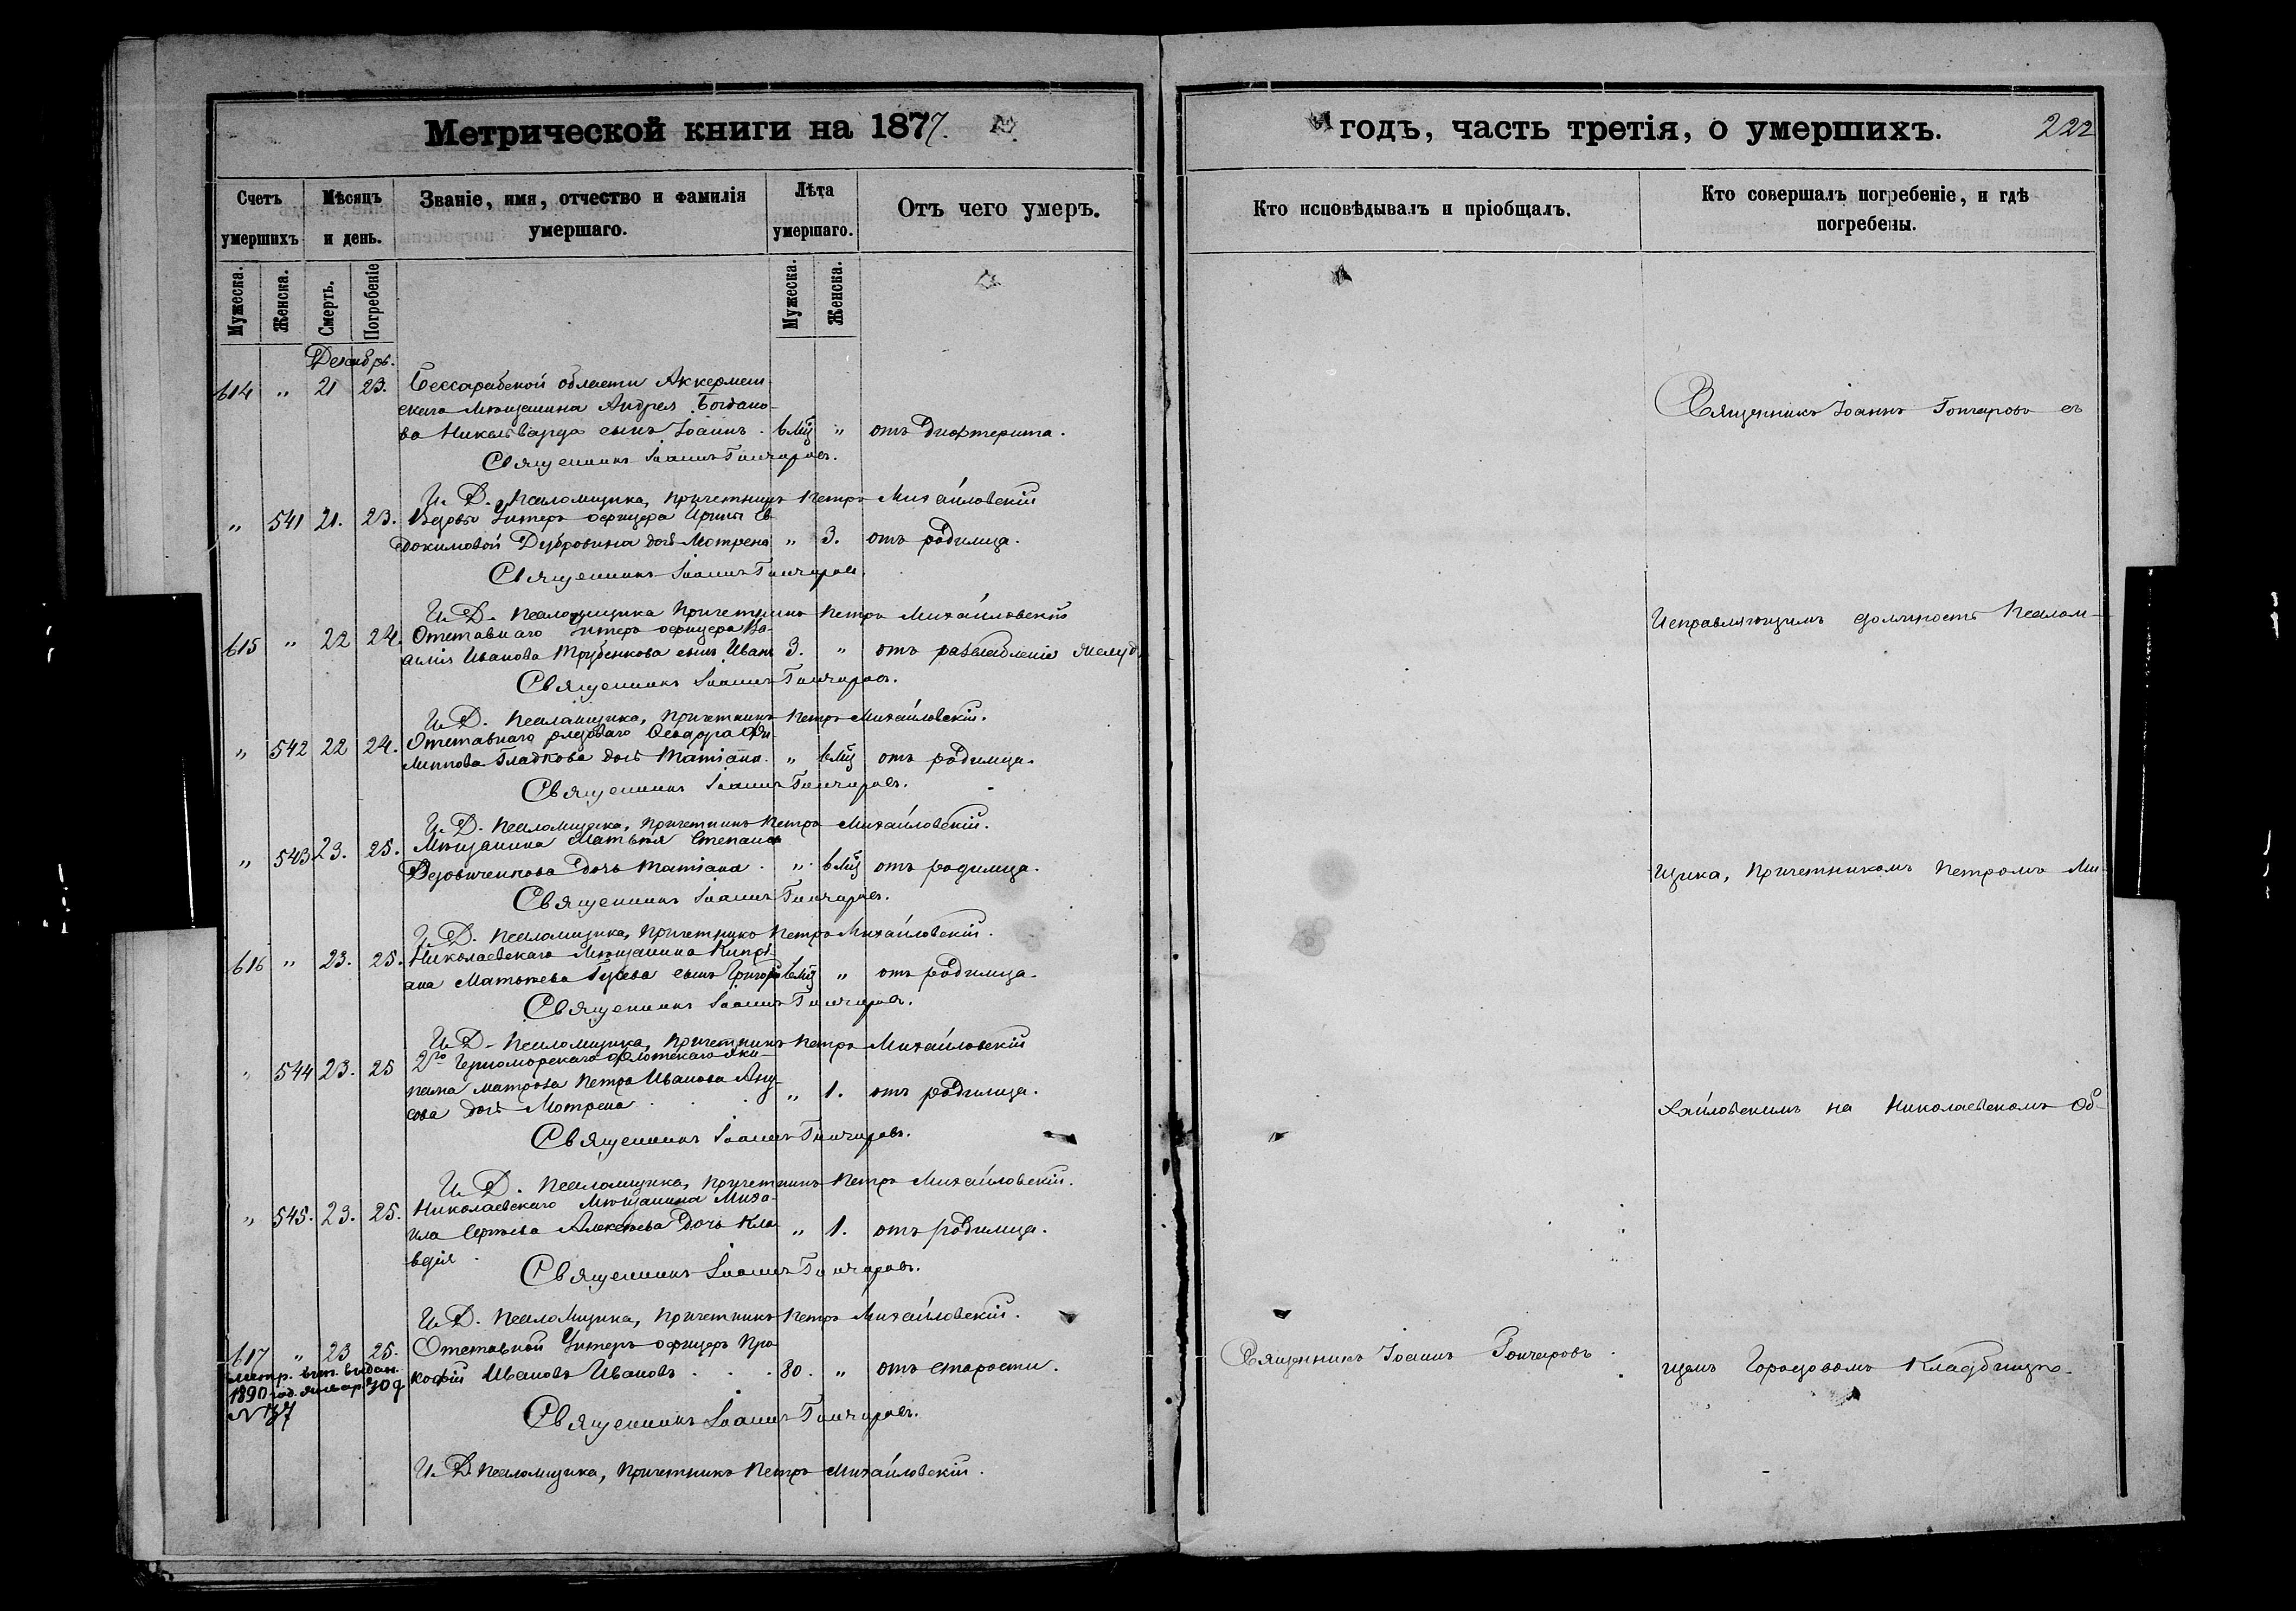 Метрической книги на 1877.
годъ, часть третія, о умершихъ.
222
Счетъ умершихъ
Мѣсяцъ и день.
Званіе, имя, отчество и фамилія умершаго.
Лѣта умершаго.
Отъ чего умеръ.
Кто исповѣдывалъ и пріобщалъ.
Кто совершалъ погребеніе, и гдѣ погребены.
Мужеска.
Женска.
Смерть.
Погребеніе
Мужеска.
Женска.
Декабрь.
614 " 21 23. Бессарабской области Аккермен-
скаго Мѣщанина Андрея Богдано-
ва сынъ Іоаннъ. 6 Мц " отъ дифтерита.
Священникъ Іоаннъ Гончаровъ.
И. Д. Псаломщика, Причетникъ Петръ Михайловскій
" 541 21. 23. Вдовы Унтеръ офицера Ирины Ев-
докимовой Дубровина дочь Мотрена " 3. отъ родимца.
Священникъ Іоаннъ Гончаровъ.
И. Д. Псаломщика Причетникъ Петръ Михайловскій
615 " 22 24. Отставнаго Унтеръ офицера Ва-
силія Иванова Трубенкова сынъ Иванъ 3. " отъ разслабленія желуд.
Священникъ Іоаннъ Гончаровъ.
И. Д. Псаломщика, Причетникъ Петръ Михайловскій.
" 542 22 24. Отставнаго рядоваго Ѳеодора Фи-
липпова Гладкова дочь Татіана. " 6 Мц отъ родимца.
Священникъ Іоаннъ Гончаровъ.
И. Д. Псаломщика, Причетникъ Петръ Михайловскій.
" 543 23. 25. Мѣщанина Матвѣя Степанова
дочь Татіана. " 6 Мц отъ родимца.
Священникъ Іоаннъ Гончаровъ.
И. Д. Псаломщика, Причетникъ Петръ Михайловскій.
616 " 23. 25. Николаевскаго Мѣщанина Кипрі-
ана Матвѣева Гусева сынъ Григорій 6 Мц " отъ родимца.
Священникъ Іоаннъ Гончаровъ.
И. Д. Псаломщика, Причетникъ Петръ Михайловскій
" 544 23. 25 2го Черноморскаго флотскаго Эки-
пажа матроса Петра Иванова
дочь Мотрена " 1. отъ родимца.
Священникъ Іоаннъ Гончаровъ.
И. Д. Псаломщика, Причетникъ Петръ Михайловскій.
" 545. 23. 25. Николаевскаго Мѣщанина Миха-
ила Сергѣева Алексѣева Дочь Кла-
вдія " 1. отъ родимца.
Священникъ Іоаннъ Гончаровъ.
И. Д. Псаломщика, Причетникъ Петръ Михайловскій.
617 " 23 25. Отставной Унтеръ офицеръ Про-
кофій Ивановъ Ивановъ . . . 80. " отъ старости.
метр. вып. выдан.
1890 год. января 30 д
№ 37
Священникъ Іоаннъ Гончаровъ.
И. Д. Псаломщика, Причетникъ Петръ Михайловскій.
Священникъ Іоаннъ Гончаровъ.
Священникъ Іоаннъ Гончаровъ съ
Исправляющимъ должность Псалом-
щика, Причетникомъ Петромъ Ми-
хайловскимъ на Николаевскомъ Об-
щемъ Городовомъ Кладбищѣ.